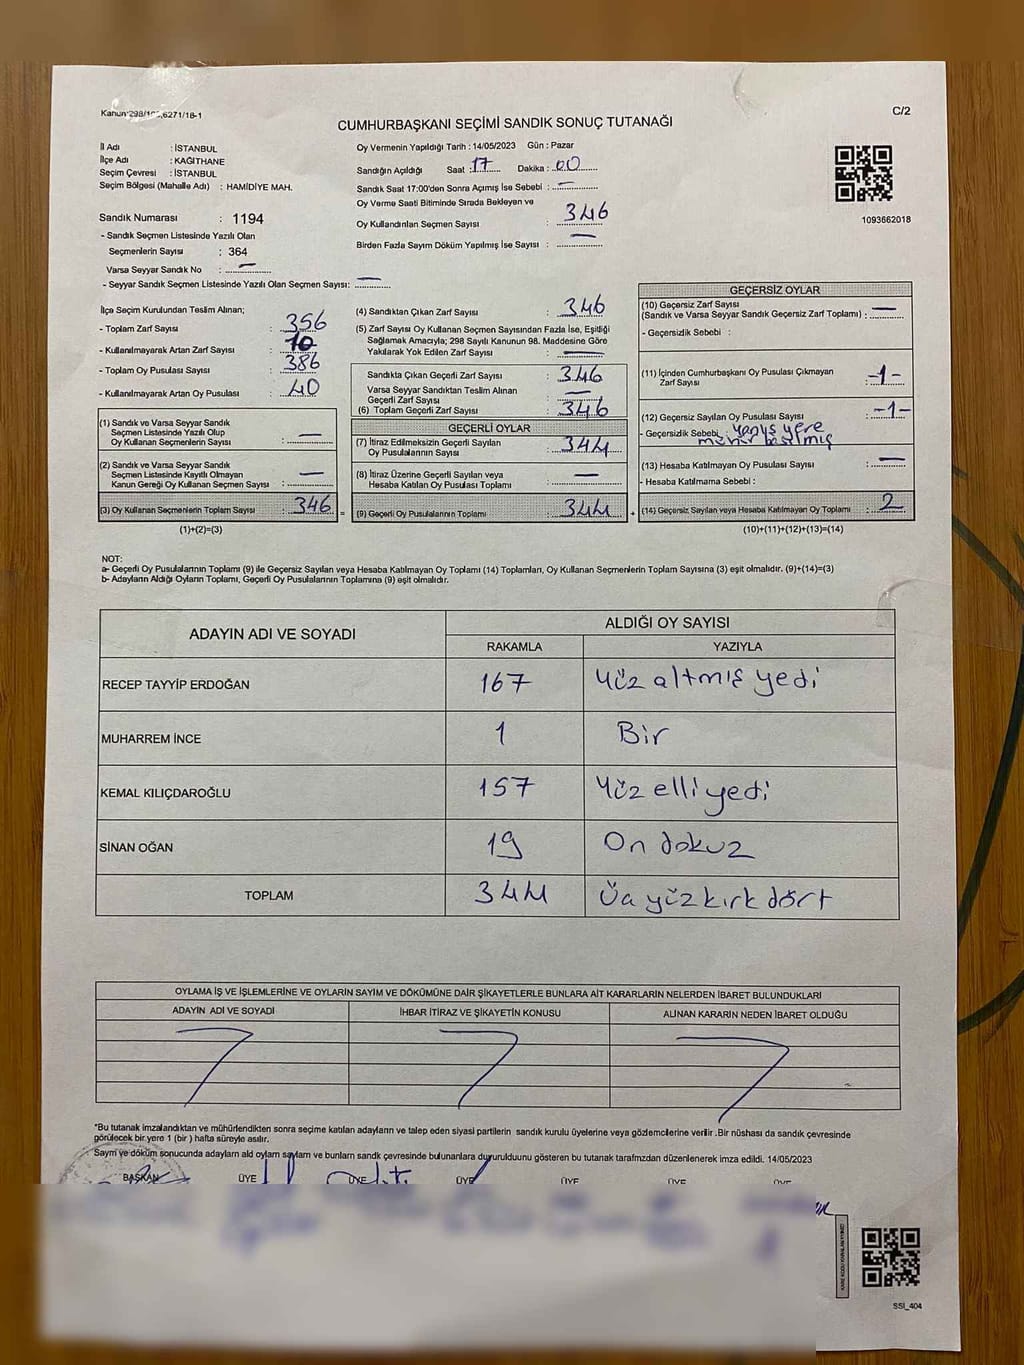 Kanun:298/105,6271/18-1
C/2
CUMHURBAŞKANI SEÇİMİ SANDIK SONUÇ TUTANAĞI
İl Adı : İSTANBUL
İlçe Adı : KAĞITHANE
Seçim Çevresi : İSTANBUL
Seçim Bölgesi (Mahalle Adı) : HAMİDİYE MAH.
Sandık Numarası : 1194
- Sandık Seçmen Listesinde Yazılı Olan
Seçmenlerin Sayısı : 364
Varsa Seyyar Sandık No : —
- Seyyar Sandık Seçmen Listesinde Yazılı Olan Seçmen Sayısı: —
Oy Vermenin Yapıldığı Tarih : 14/05/2023 Gün : Pazar
Sandığın Açıldığı Saat : 17 Dakika : 00
Sandık Saat 17:00'den Sonra Açımış İse Sebebi : —
Oy Verme Saati Bitiminde Sırada Bekleyen ve
Oy Kullandırılan Seçmen Sayısı : 346
Birden Fazla Sayım Döküm Yapılmış İse Sayısı : —
1093662018
İlçe Seçim Kurulundan Teslim Alınan;
- Toplam Zarf Sayısı : 356
- Kullanılmayarak Artan Zarf Sayısı : 10
- Toplam Oy Pusulası Sayısı : 386
- Kullanılmayarak Artan Oy Pusulası : 40
(1) Sandık ve Varsa Seyyar Sandık
Seçmen Listesinde Yazılı Olup
Oy Kullanan Seçmenlerin Sayısı : —
(2) Sandık ve Varsa Seyyar Sandık
Seçmen Listesinde Kayıtlı Olmayan
Kanun Gereği Oy Kullanan Seçmen Sayısı : —
(3) Oy Kullanan Seçmenlerin Toplam Sayısı : 346 =
(1)+(2)=(3)
(4) Sandıktan Çıkan Zarf Sayısı : 346
(5) Zarf Sayısı Oy Kullanan Seçmen Sayısından Fazla İse, Eşitliği
Sağlamak Amacıyla; 298 Sayılı Kanunun 98. Maddesine Göre
Yakılarak Yok Edilen Zarf Sayısı : —
Sandıkta Çıkan Geçerli Zarf Sayısı : 346
Varsa Seyyar Sandıktan Teslim Alınan
Geçerli Zarf Sayısı : —
(6) Toplam Geçerli Zarf Sayısı : 346
GEÇERLİ OYLAR
(7) İtiraz Edilmeksizin Geçerli Sayılan
Oy Pusulasının Sayısı : 344
(8) İtiraz Üzerine Geçerli Sayılan veya
Hesaba Katılan Oy Pusulası Toplamı : —
(9) Geçerli Oy Pusulalarının Toplamı : 344 +
GEÇERSİZ OYLAR
(10) Geçersiz Zarf Sayısı
(Sandık ve Varsa Seyyar Sandık Geçersiz Zarf Toplamı) : —
- Geçersizlik Sebebi :
(11) İçinden Cumhurbaşkanı Oy Pusulası Çıkmayan
Zarf Sayısı : -1-
(12) Geçersiz Sayılan Oy Pusulası Sayısı : -1-
- Geçersizlik Sebebi : yanış yere
mühür basılmış
(13) Hesaba Katılmayan Oy Pusulası Sayısı : —
- Hesaba Katılmama Sebebi :
(14) Geçersiz Sayılan veya Hesaba Katılmayan Oy Toplamı : 2
(10)+(11)+(12)+(13)=(14)
NOT:
a- Geçerli Oy Pusulalarının Toplamı (9) ile Geçersiz Sayılan veya Hesaba Katılmayan Oy Toplamı (14) Toplamları, Oy Kullanan Seçmenlerin Toplam Sayısına (3) eşit olmalıdır. (9)+(14)=(3)
b- Adayların Aldığı Oyların Toplamı, Geçerli Oy Pusulalarının Toplamına (9) eşit olmalıdır.
ADAYIN ADI VE SOYADI ALDIĞI OY SAYISI
RAKAMLA YAZIYLA
RECEP TAYYİP ERDOĞAN 167 Yüz altmış yedi
MUHARREM İNCE 1 Bir
KEMAL KILIÇDAROĞLU 157 Yüz elli yedi
SİNAN OĞAN 19 On dokuz
TOPLAM 344 Üç yüz kırk dört
OYLAMA İŞ VE İŞLEMLERİNE VE OYLARIN SAYIM VE DÖKÜMÜNE DAİR ŞİKAYETLERLE BUNLARA AİT KARARLARIN NELERDEN İBARET BULUNDUKLARI
ADAYIN ADI VE SOYADI İHBAR İTİRAZ VE ŞİKAYETİN KONUSU ALINAN KARARIN NEDEN İBARET OLDUĞU
"Bu tutanak imzalandıktan ve mühürlendikten sonra seçime katılan adayların ve talep eden siyasi partilerin sandık kurulu üyelerine veya gözlemcilerine verilir .Bir nüshası da sandık çevresinde
görülecek bir yere 1 (bir ) hafta süreyle asılır.
Sayım ve döküm sonucunda adayların aldı oyların sayıları ve bunların sandık çevresinde bulunanlara duyurulduunu gösteren bu tutanak tarafmzdan düzenlenerek imza edildi. 14/05/2023
BAŞKAN ÜYE ÜYE ÜYE ÜYE ÜYE ÜYE
KARE KODU KARALAMAYINIZ!
SSİ_404